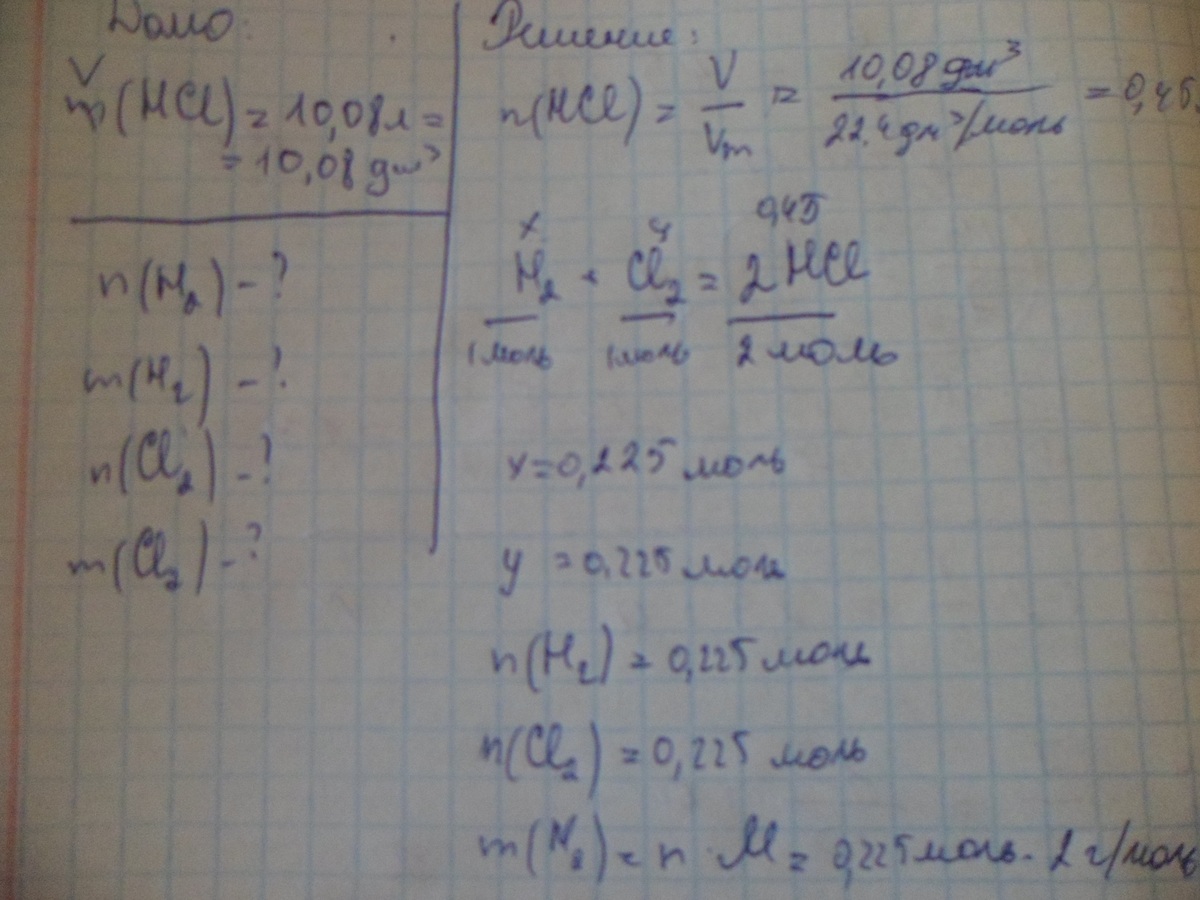 Дано:
V
m(HCl) = 10,08 л =
= 10,08 дм³
n(H₂) - ?
m(H₂) - ?
n(Cl₂) - ?
m(Cl₂) - ?
Решение:
n(HCl) = V/Vm = 10,08 дм³/22,4 дм³/моль = 0,45
x y 0,45
H₂ + Cl₂ = 2HCl
1 моль 1 моль 2 моль
x = 0,225 моль
y = 0,225 моль
n(H₂) = 0,225 моль
n(Cl₂) = 0,225 моль
m(H₂) = n · M = 0,225 моль · 2 г/моль